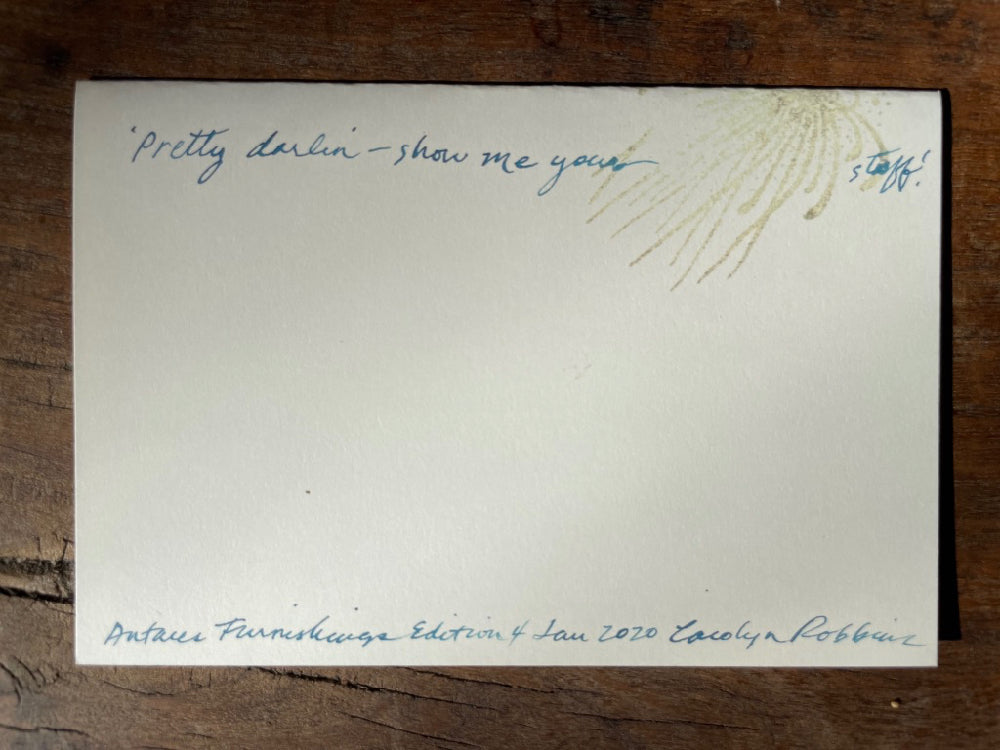 'Pretty darlin' – show me your stuff!
Antares Furnishings Edition 4 Jan 2020 Carolyn Robbins